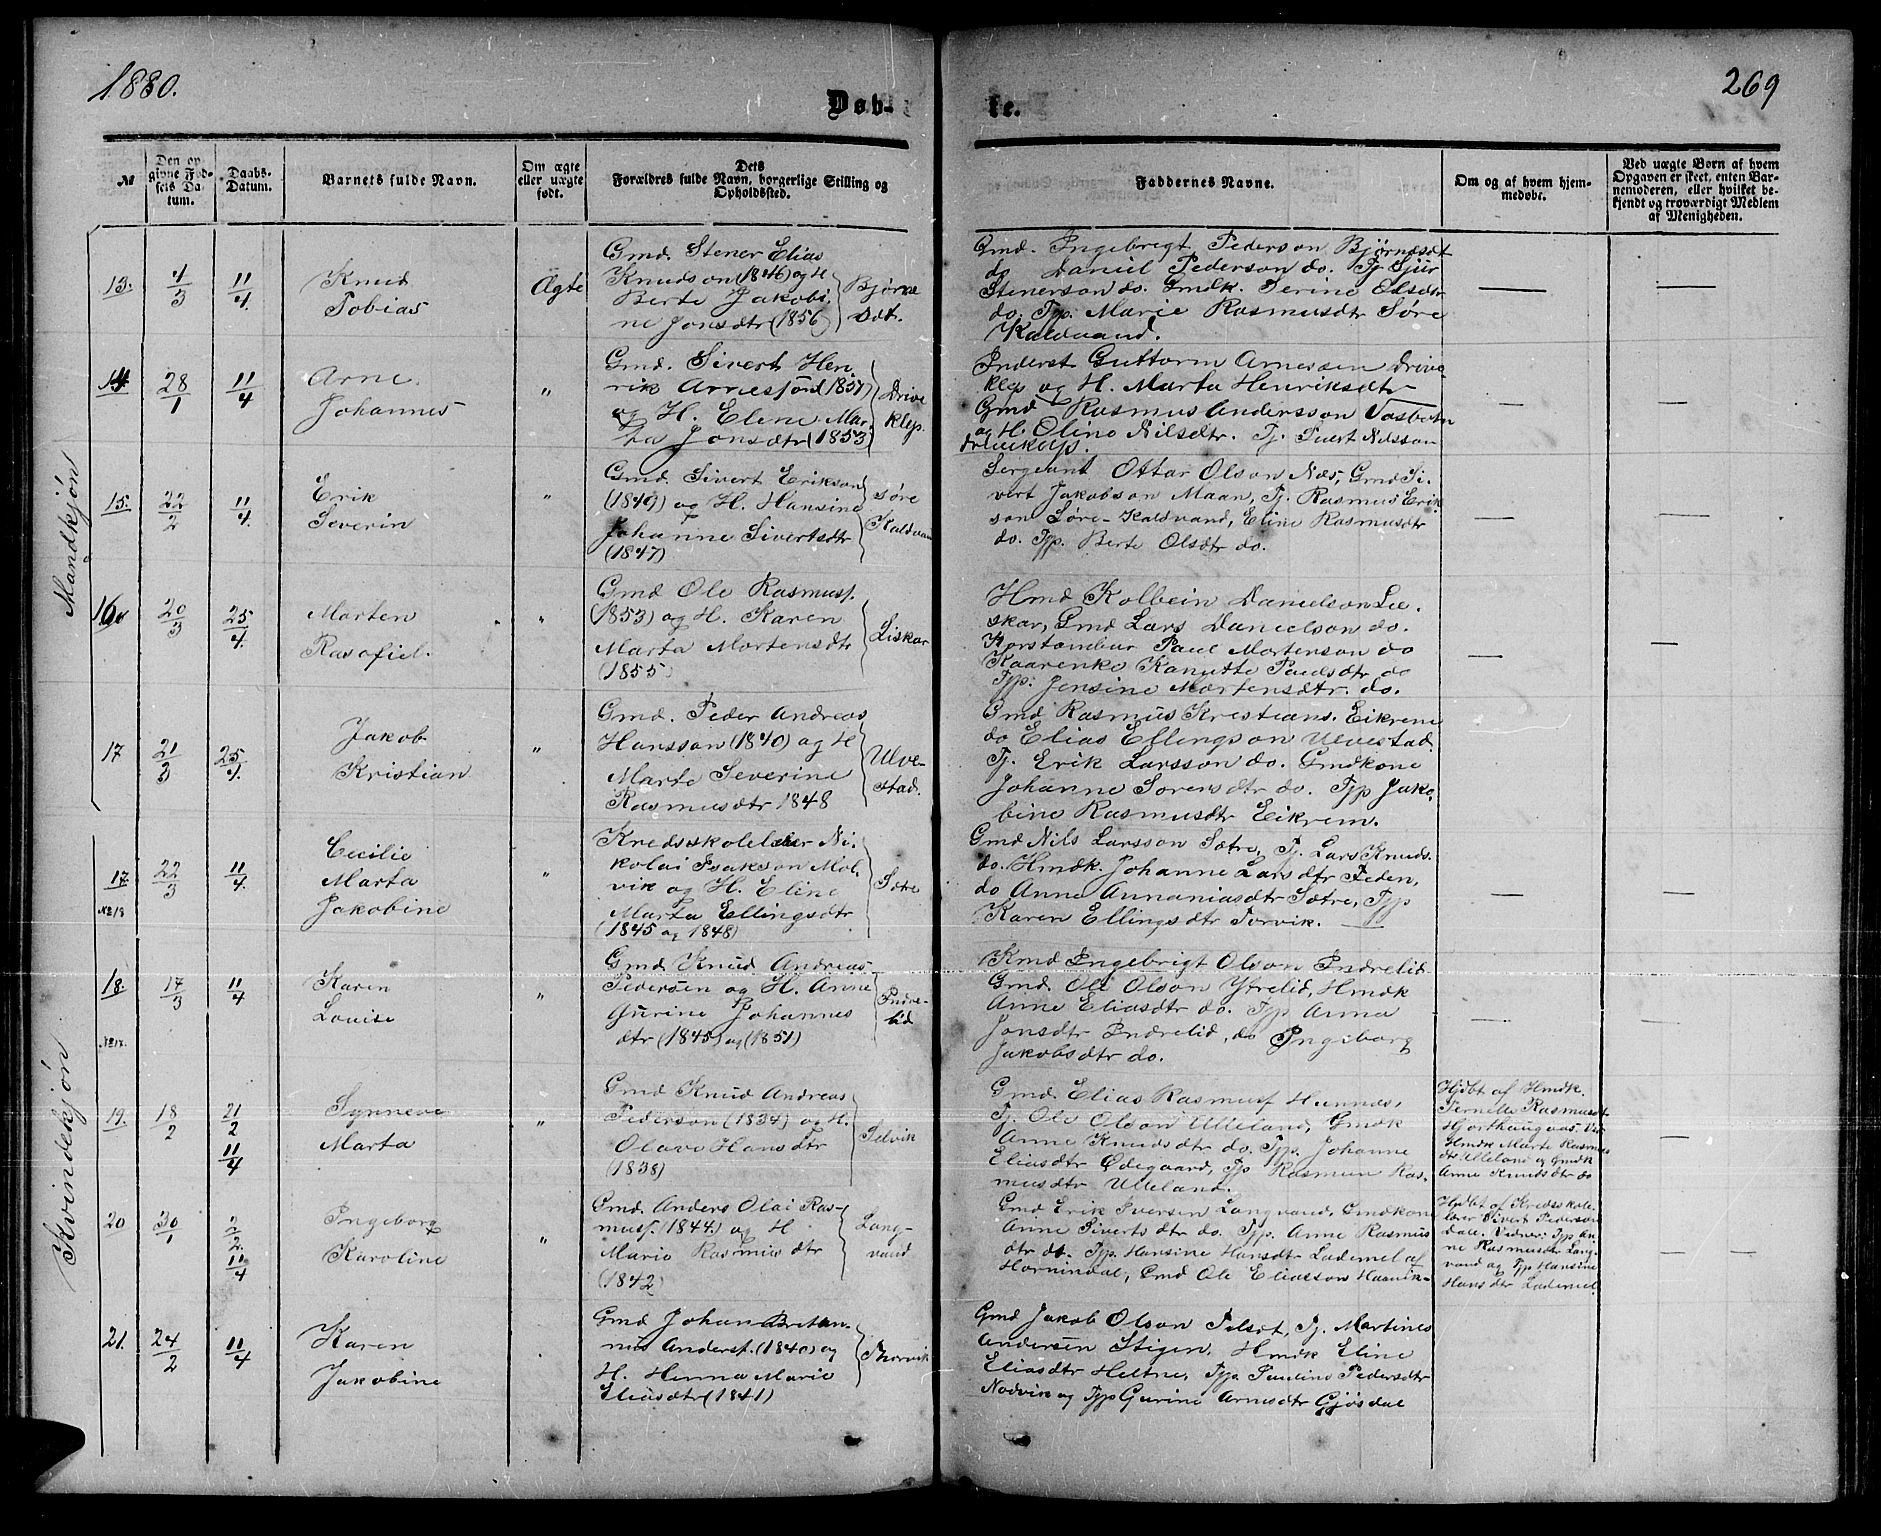 1880.
269
Døb-
te.
№
Den op-
givne Fød-
sels Da-
tum.
Daabs-
Datum.
Barnets fulde Navn.
Om ægte
eller uægte
født.
Dets
Forældres fulde Navn, borgerlige Stilling og
Opholdssted.
Faddernes Navne.
Om og af hvem hjem-
medøbt.
Ved uægte Børn af hvem
Opgaven er skeet, enten Bar-
nemoderen, eller hvilket be-
kjendt og troværdigt Medlem
af Menigheden.
Mandkjøn
13. 4/3 11/4
Knud
Tobias
Ægte
Gmd. Stener Elias
Knudson (1846) og H
Berte Jakobi-
ne Jonsdtr (1856)
Bjørne
Sdt.
Gmd. Ingebrigt Pederson Bjørnesdt
do Daniel Pederson do. Tj Sjur
Stenerson do. Gmdk. Serine Olsdtr
do. Tp. Marie Rasmusdtr Søre
Kaldvand.
14 28/1 11/4
Arne
Johannes
"
Gmd. Sivert Hen-
rik Arneson (1857)
og H. Elene Mar-
ta Jonsdtr (1853)
Drive
klep.
Inderst Guttorm Arnessen Drive-
klep og H. Marta Henriksdtr
Gmd Rasmus Andersson Vasbotn
og H. Oline Nilsdtr. Tj. Sivert Nilsson
Driveklep.
15. 22/2 11/4
Erik
Severin
"
Gmd. Sivert Erikson
(1849) og H. Hansine
Johanne Sivertsdtr
(1847)
Søre
Kaldvan
Sergeant Ottar Olson Næs, Gmd Si-
vert Jakobson Maan, Tj. Rasmus Erik
son Søre-Kaldvand, Eline Rasmusdtr
do. Tp. Berte Olsdtr do.
16 20/3 25/4.
Marten
Rasofiel.
"
Gmd Ole Rasmusf.
(1853) og H. Karen
Marta Mortensdtr
(1855)
Liskar
Hmd Kolbein Danielson Lie-
skar, Gmd Lars Danielson do.
Paul Mortenson do
Kanutte Paulsdtr do
Tp: Jensine Mortensdtr. do.
17 21/3 25/4.
Jakob
Kristian
"
Gmd. Peder Andreas
Hansson (1840) og H
Marte Severine
Rasmusdtr 1848
Ulve-
stad.
Gmd Rasmus Kristians. Eikrem
do Elias Ellingson Ulvestad
Tj. Erik Larsson do. Gmdkone
Johanne Sørensdtr do. Tp Jako-
bine Rasmusdtr Eikrem.
Kvindekjøn
17. 22/3 11/4.
№ 18
Cecilie
Marta
Jakobine
"
Kredsskolelærer Ni-
kolai Isakson Mol-
vik og H. Eline
Marta Ellingsdtr
(1845 og 1848)
Sætre
Gmd Nils Larsson Sætre, Tj. Lars Knuds.
do. Hmdk. Johanne Larsdtr Peden,
do Anne Annaniasdtr Sætre, Tp
Karen Ellingsdtr Torvik.
18. 17/3 11/4
Karen
Louise
"
Gmd Knud Andreas
Pedersen og H. Anne
Gurine Johannes
dtr (1845) og (1851)
Indre-
lid
Kmd Ingebrigt Olson Indrelid
Gmd. Ole Olson Ytrelid, Hmdk
Anne Eliasdtr do. Tp Anna
Jonsdtr Indrelid, do Ingeborg
Jakobsdtr do.
19. 18/2 21/2
11/4
Synneve
Marta
"
Gmd Knud Andreas
Pederson (1834) og H.
Olave Hansdtr
(1838)
Selvik
Gmd. Elias Rasmusf Hunnes,
Tj. Ole Olson Ulleland, Gmdk
Anne Knudsdtr do. Tp. Johanne
Eliasdtr Ødegaard, Tp Rasmun Ras-
musdtr Ulleland.
Hjdbt af Hmdk.
Pernille Rasmusdt
Hjorthaugvas. Vid-
Hmdk Marte Rasmus
dtr Ulleland og Gmdk
Anne Knudsdtr do
20 30/1 2/2.
11/4
Ingeborg
Karoline
"
Gmd. Anders Olai Ras-
musf. (1844) og H
Marie Rasmusdtr
(1842)
Lang-
vand
Gmd Erik Iversen Langvand, Gmdkone
Anne Sivertsdtr do. Tp. Anne Rasmus
dtr do. Tp. Hansine Hansdtr Lademel af
Hornindal, Gmd Ole Eliasson Haavik-
Hjdbt af Kredsskole-
lærer Sivert Pederson
Dale. Vidner: Tp An-
ne Rasmusdtr Lang-
vand og Tp Hansine
Hansdtr Lademel.
21. 24/2 11/4
Karen
Jakobine
Gmd Johan Britan-
nus Andersf. (1840) og
H. Henna Marie
Eliasdtr (1841)
Thorvik
Gmd Jakob Olson Selsæt, Tj. Martines
Andersen Stigen, Hmdk Eline
Eliasdtr Heltne, Tp. Pauline Pedersdtr
Nodvik og Tp Gurine Arnesdtr Gjøsdal